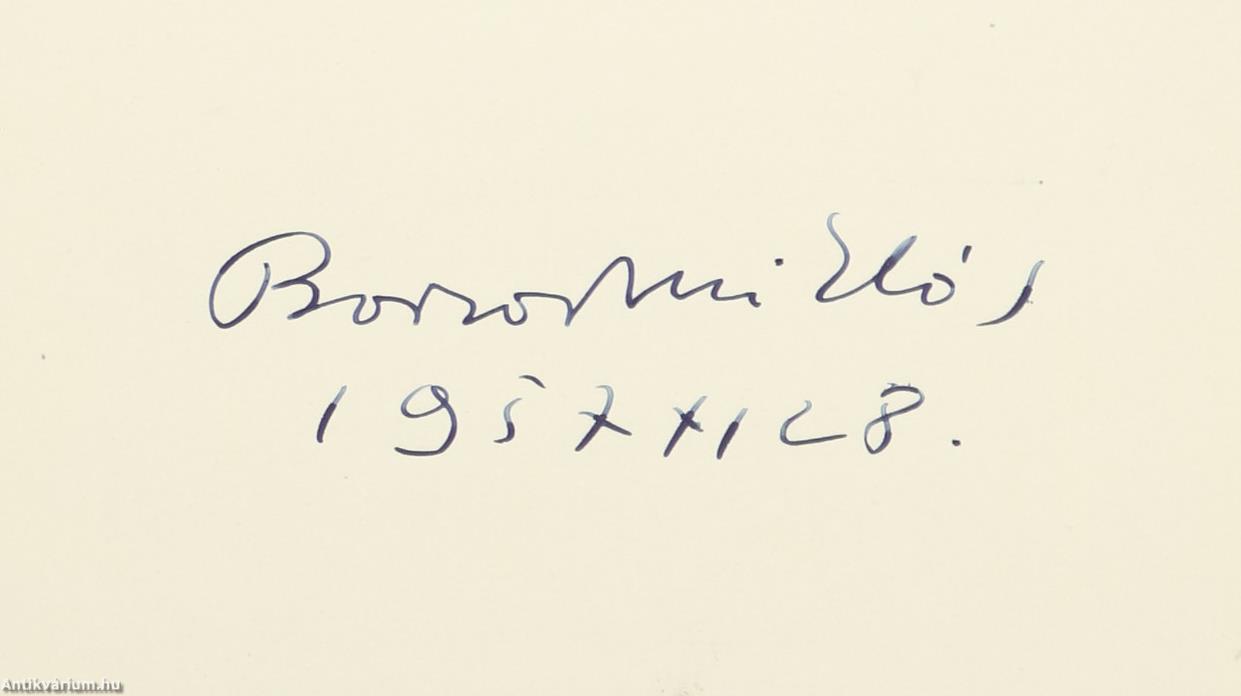 Borsos Miklós
1957 XI 28.
Antikvárium.hu